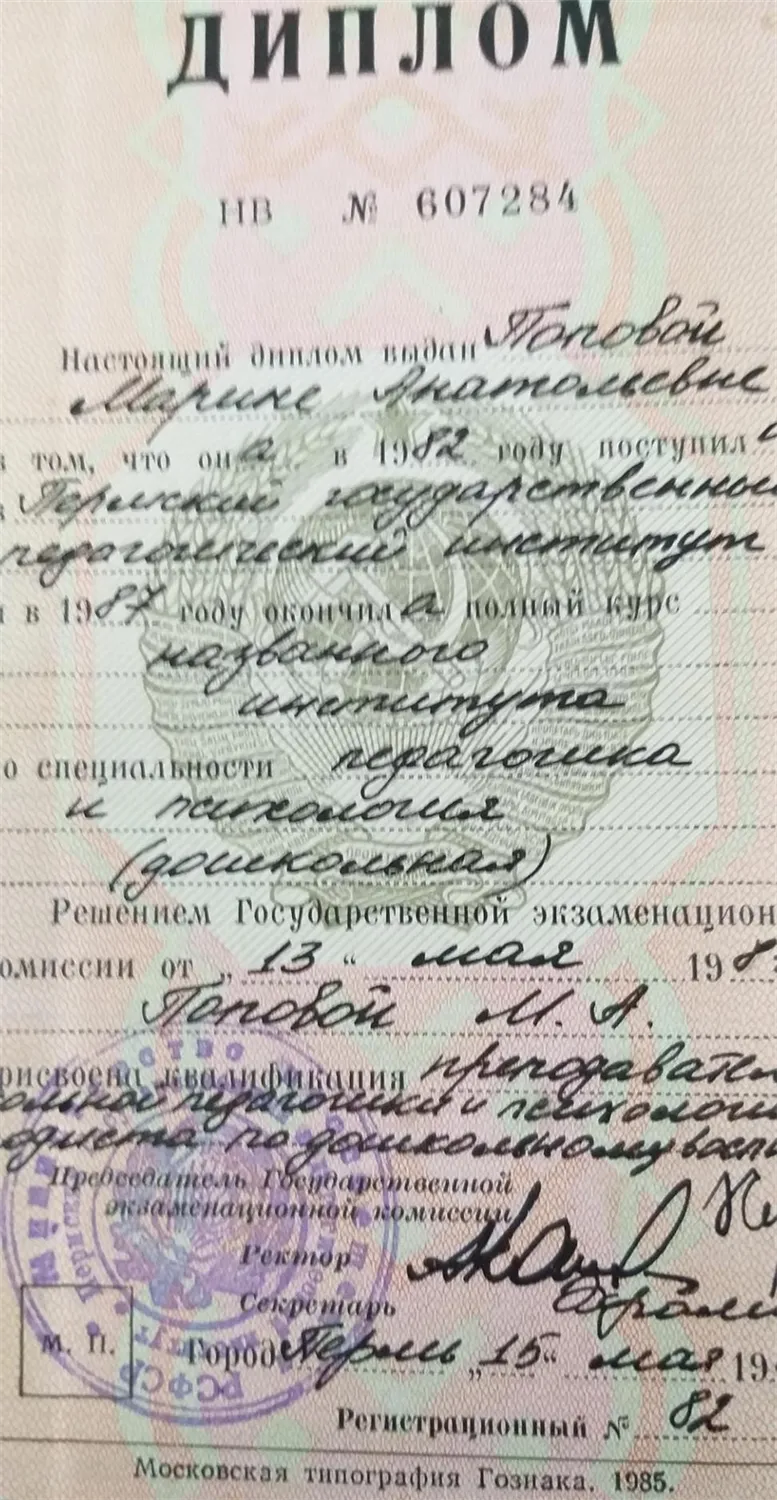 ДИПЛОМ
НВ № 607284
Настоящий диплом выдан Поповой
Марине Анатольевне
том, что она в 1982 году поступила
Пермский государственный
педагогический институт
в 1987 году окончила полный курс
названного
института
о специальности педагогика
и психология
(дошкольная)
Решением Государственной экзаменацион
омиссии от „13“ мая 198
Поповой М. А.
рисвоена квалификация преподавател
ольной педагогики и психологи
одиста по дошкольному восп
Председатель Государственной
экзаменационной комиссии
Ректор
Секретарь
М. П.
Город Пермь „15“ мая 19
РСФСР
Регистрационный № 82
Московская типография Гознака. 1985.